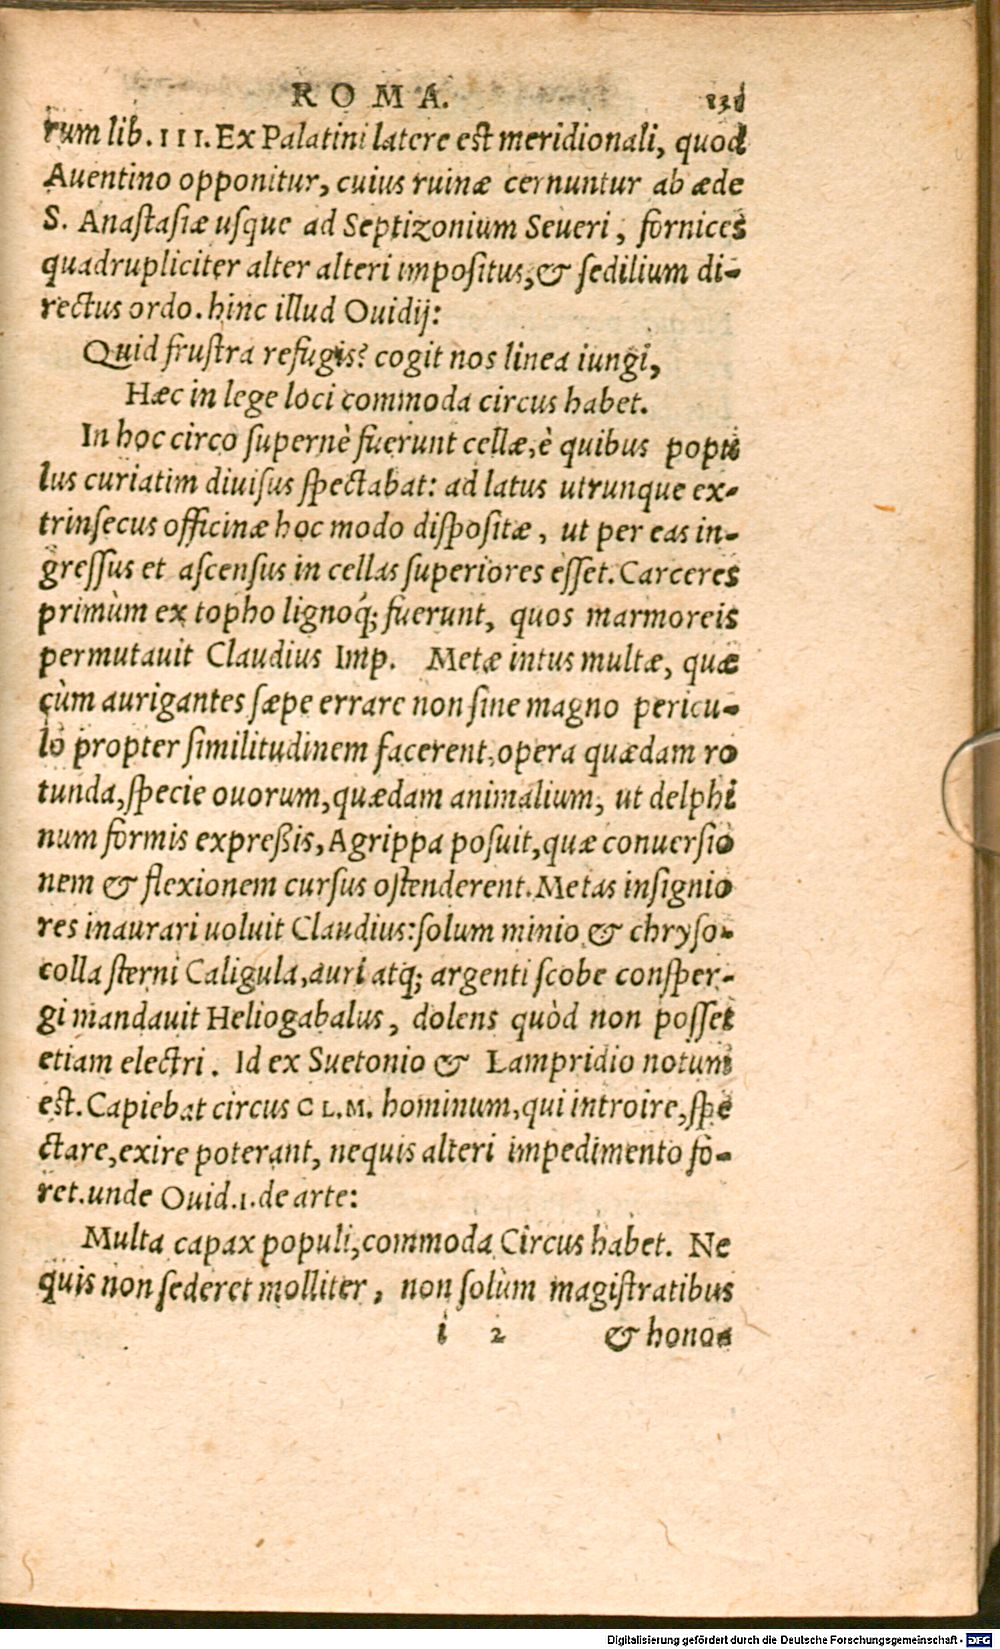 ROMA. 131
rum lib. III. Ex Palatini latere est meridionali, quod
Auentino opponitur, cuius ruinæ cernuntur ab æde
S. Anastasiæ usque ad Septizonium Seueri, fornices
quadrupliciter alter alteri impositus, & sedilium di-
rectus ordo. hinc illud Ouidij:
Quid frustra refugis? cogit nos linea iungi,
Hæc in lege loci commoda circus habet.
In hoc circo supernè fuerunt cellæ, è quibus popu
lus curiatim diuisus spectabat: ad latus utrunque ex-
trinsecus officinæ hoc modo dispositæ, ut per eas in-
gressus et ascensus in cellas superiores esset. Carceres
primùm ex topho lignoq́; fuerunt, quos marmoreis
permutauit Claudius Imp. Metæ intus multæ, quæ
cùm aurigantes sæpe errare non sine magno pericu-
lo propter similitudinem facerent, opera quædam ro
tunda, specie ouorum, quædam animalium, ut delphi
num formis expreßis, Agrippa posuit, quæ conuersio
nem & flexionem cursus ostenderent. Metas insignio
res inaurari uoluit Claudius: solum minio & chryso-
colla sterni Caligula, auri atq; argenti scobe consper-
gi mandauit Heliogabalus, dolens quòd non posset
etiam electri. Id ex Suetonio & Lampridio notum
est. Capiebat circus CLM. hominum, qui introire, spe
ctare, exire poterant, nequis alteri impedimento fo-
ret. unde Ouid. 1. de arte:
Multa capax populi, commoda Circus habet. Ne
quis non sederet molliter, non solùm magistratibus
i 2 & hono
Digitalisierung gefördert durch die Deutsche Forschungsgemeinschaft - DFG